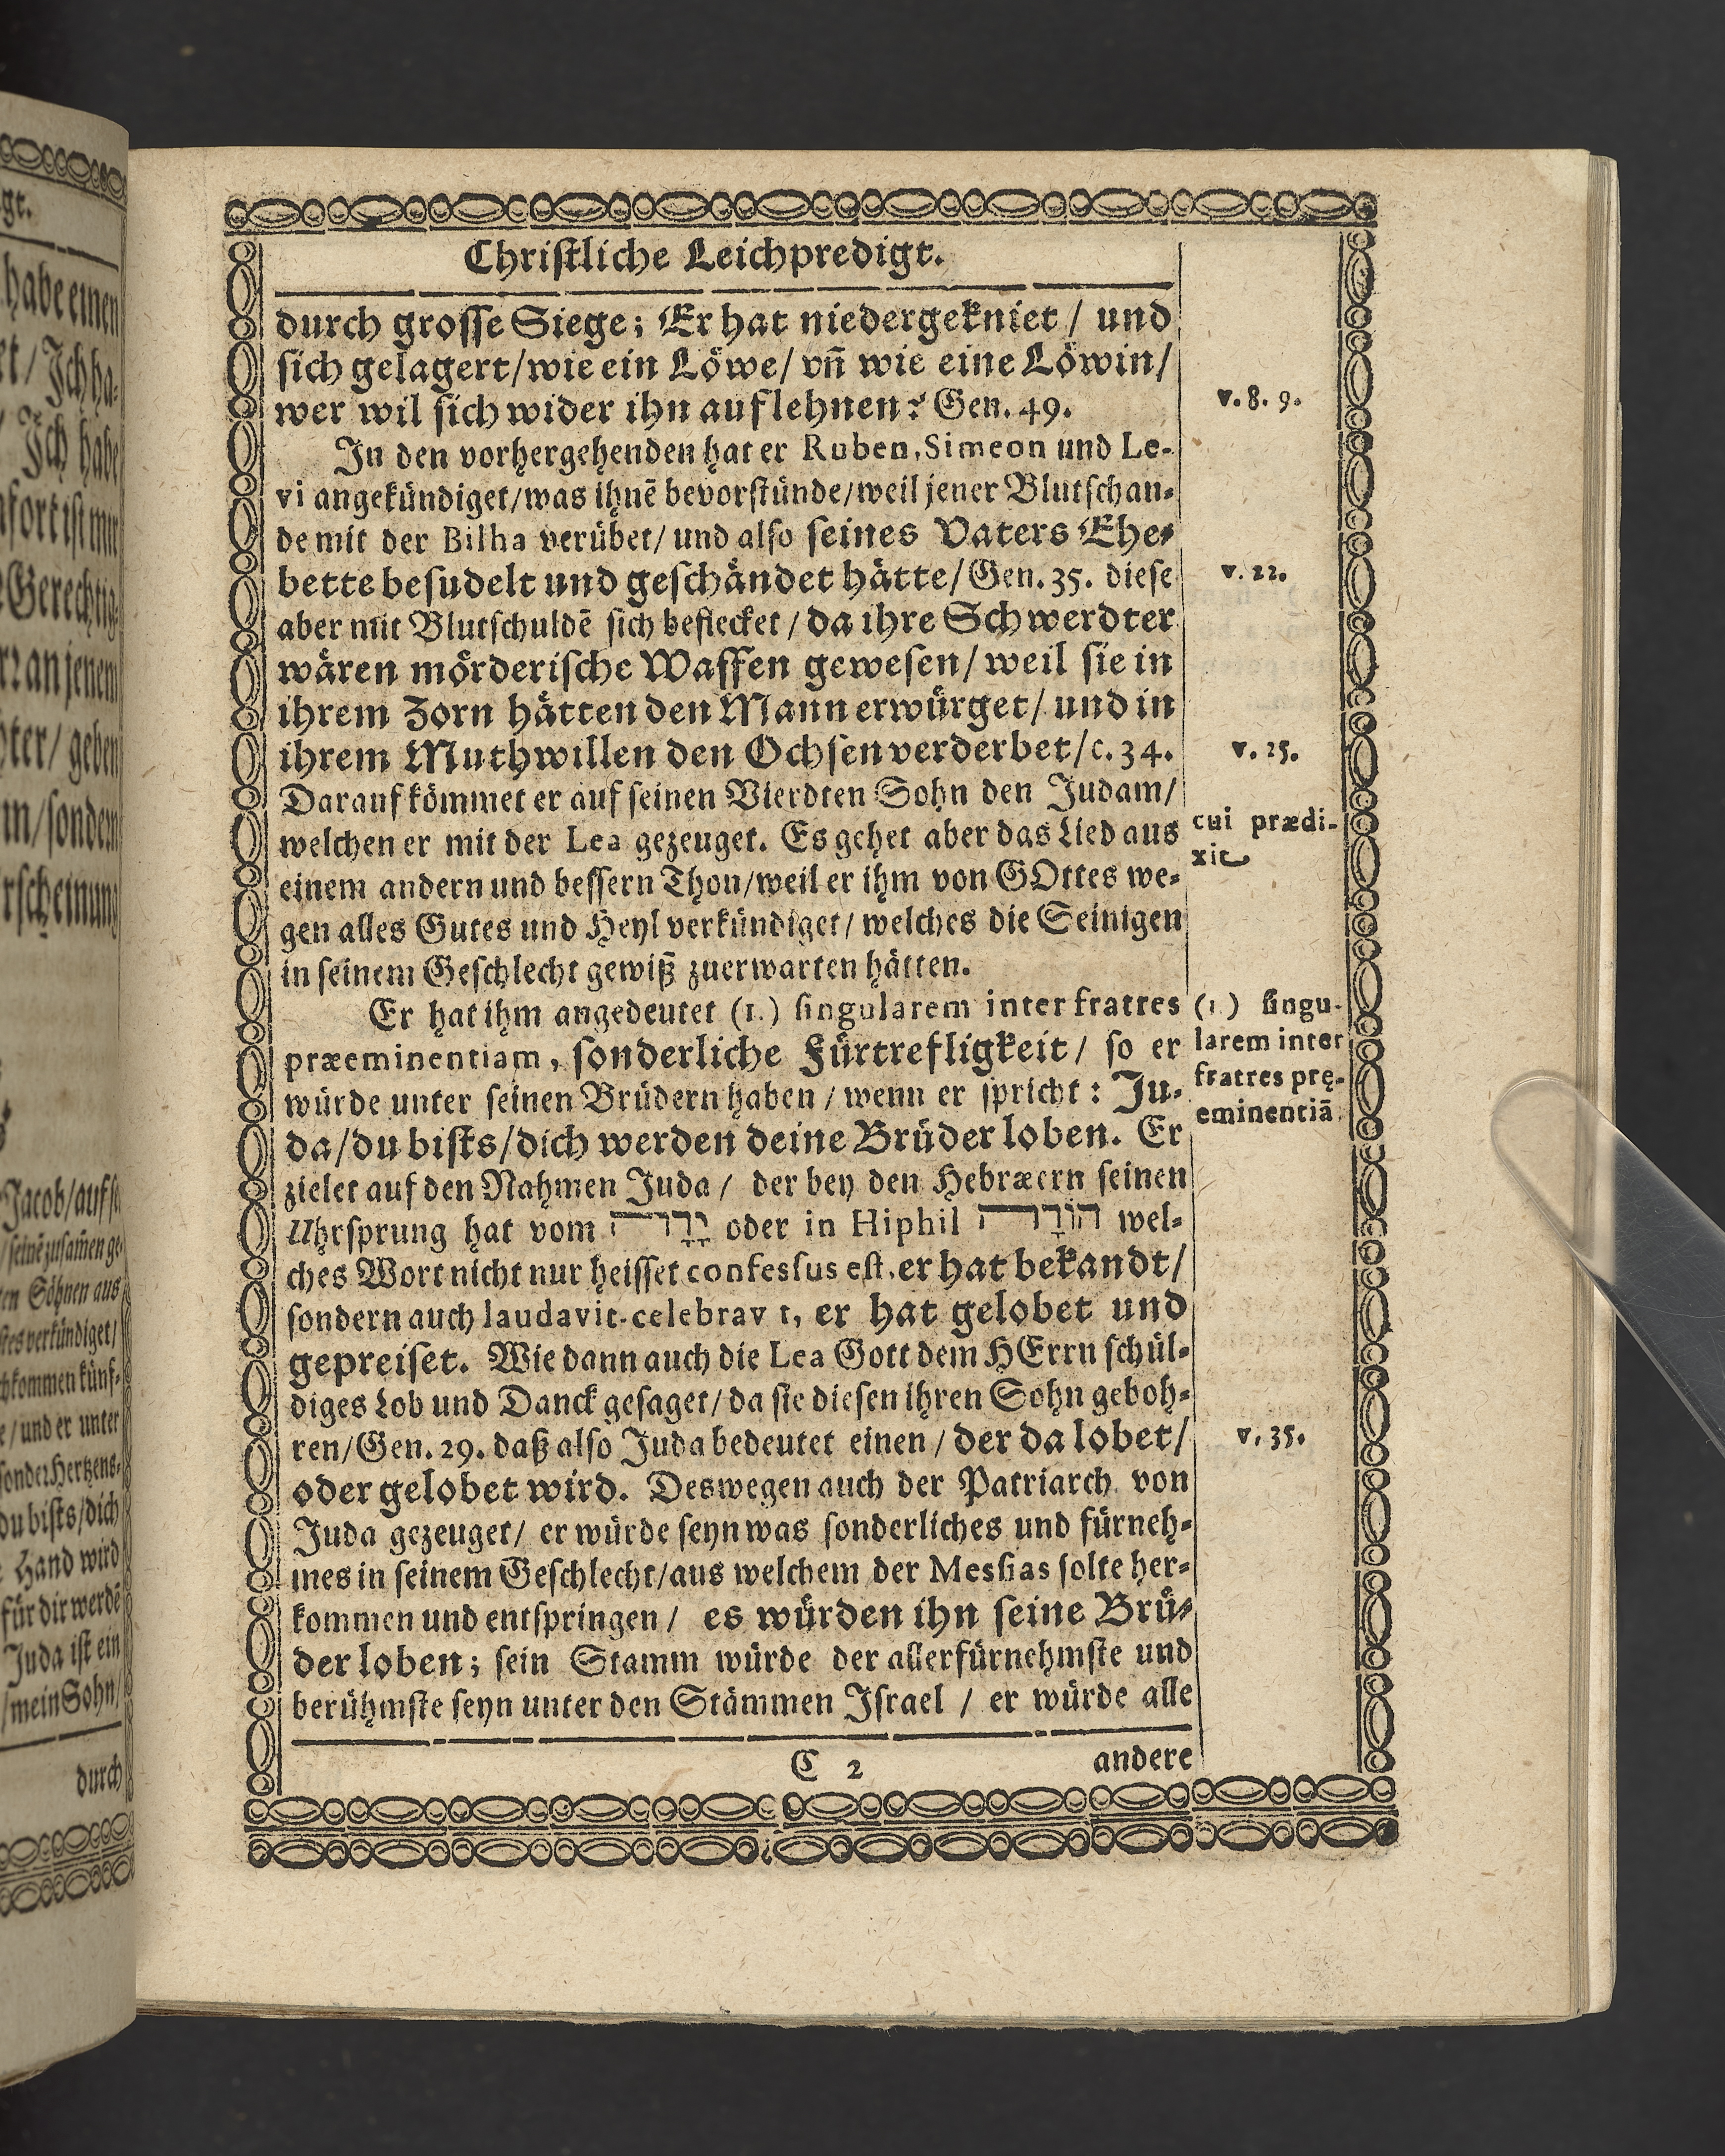 Christliche Leichpredigt.
durch grosse Siege; Er hat niedergekniet / und
sich gelagert/wie ein Löwe/ vn̄ wie eine Löwin/
wer wil sich wider ihn auflehnen? Gen. 49.
v. 8. 9.
In den vorhergehenden hat er Ruben, Simeon und Le-
vi angekündiget/was ihnē bevorstünde/weil jener Blutschan-
de mit der Bilha verübet/ und also seines Vaters Ehe-
bette besudelt und geschändet hätte/Gen. 35. diese
v. 22.
aber mit Blutschuldē sich beflecket / da ihre Schwerdter
wären mörderische Waffen gewesen/ weil sie in
ihrem Zorn hätten den Mann erwürget/ und in
ihrem Muthwillen den Ochsen verderbet/c. 34.
v. 25.
Darauf kömmet er auf seinen Vierdten Sohn den Judam/
welchen er mit der Lea gezeuget. Es gehet aber das Lied aus
cui prædi-
xit
einem andern und bessern Thon/weil er ihm von GOttes we-
gen alles Gutes und Heyl verkündiget/ welches die Seinigen
in seinem Geschlecht gewiß zuerwarten hätten.
Er hat ihm angedeutet (1.) singularem inter fratres
præeminentiam, sonderliche Fürtrefligkeit/ so er
würde unter seinen Brüdern haben / wenn er spricht: Ju-
(1.) singu-
larem inter
fratres prę-
eminentiā.
da/du bists/dich werden deine Brüder loben. Er
zielet auf den Nahmen Juda / der bey den Hebræern seinen
Uhrsprung hat vom יָדָה oder in Hiphil הוֹדָה wel-
ches Wort nicht nur heisset confessus est, er hat bekandt/
sondern auch laudavit. celebrav t, er hat gelobet und
gepreiset. Wie dann auch die Lea Gott dem HErrn schül-
diges Lob und Danck gesaget/ da sie diesen ihren Sohn geboh-
ren/Gen. 29. daß also Juda bedeutet einen / der da lobet/
v. 35.
oder gelobet wird. Deswegen auch der Patriarch von
Juda gezeuget/ er würde seyn was sonderliches und fürneh-
mes in seinem Geschlecht/aus welchem der Messias solte her-
kommen und entspringen / es würden ihn seine Brü-
der loben; sein Stamm würde der allerfürnehmste und
berühmste seyn unter den Stämmen Israel / er würde alle
C 2 andere